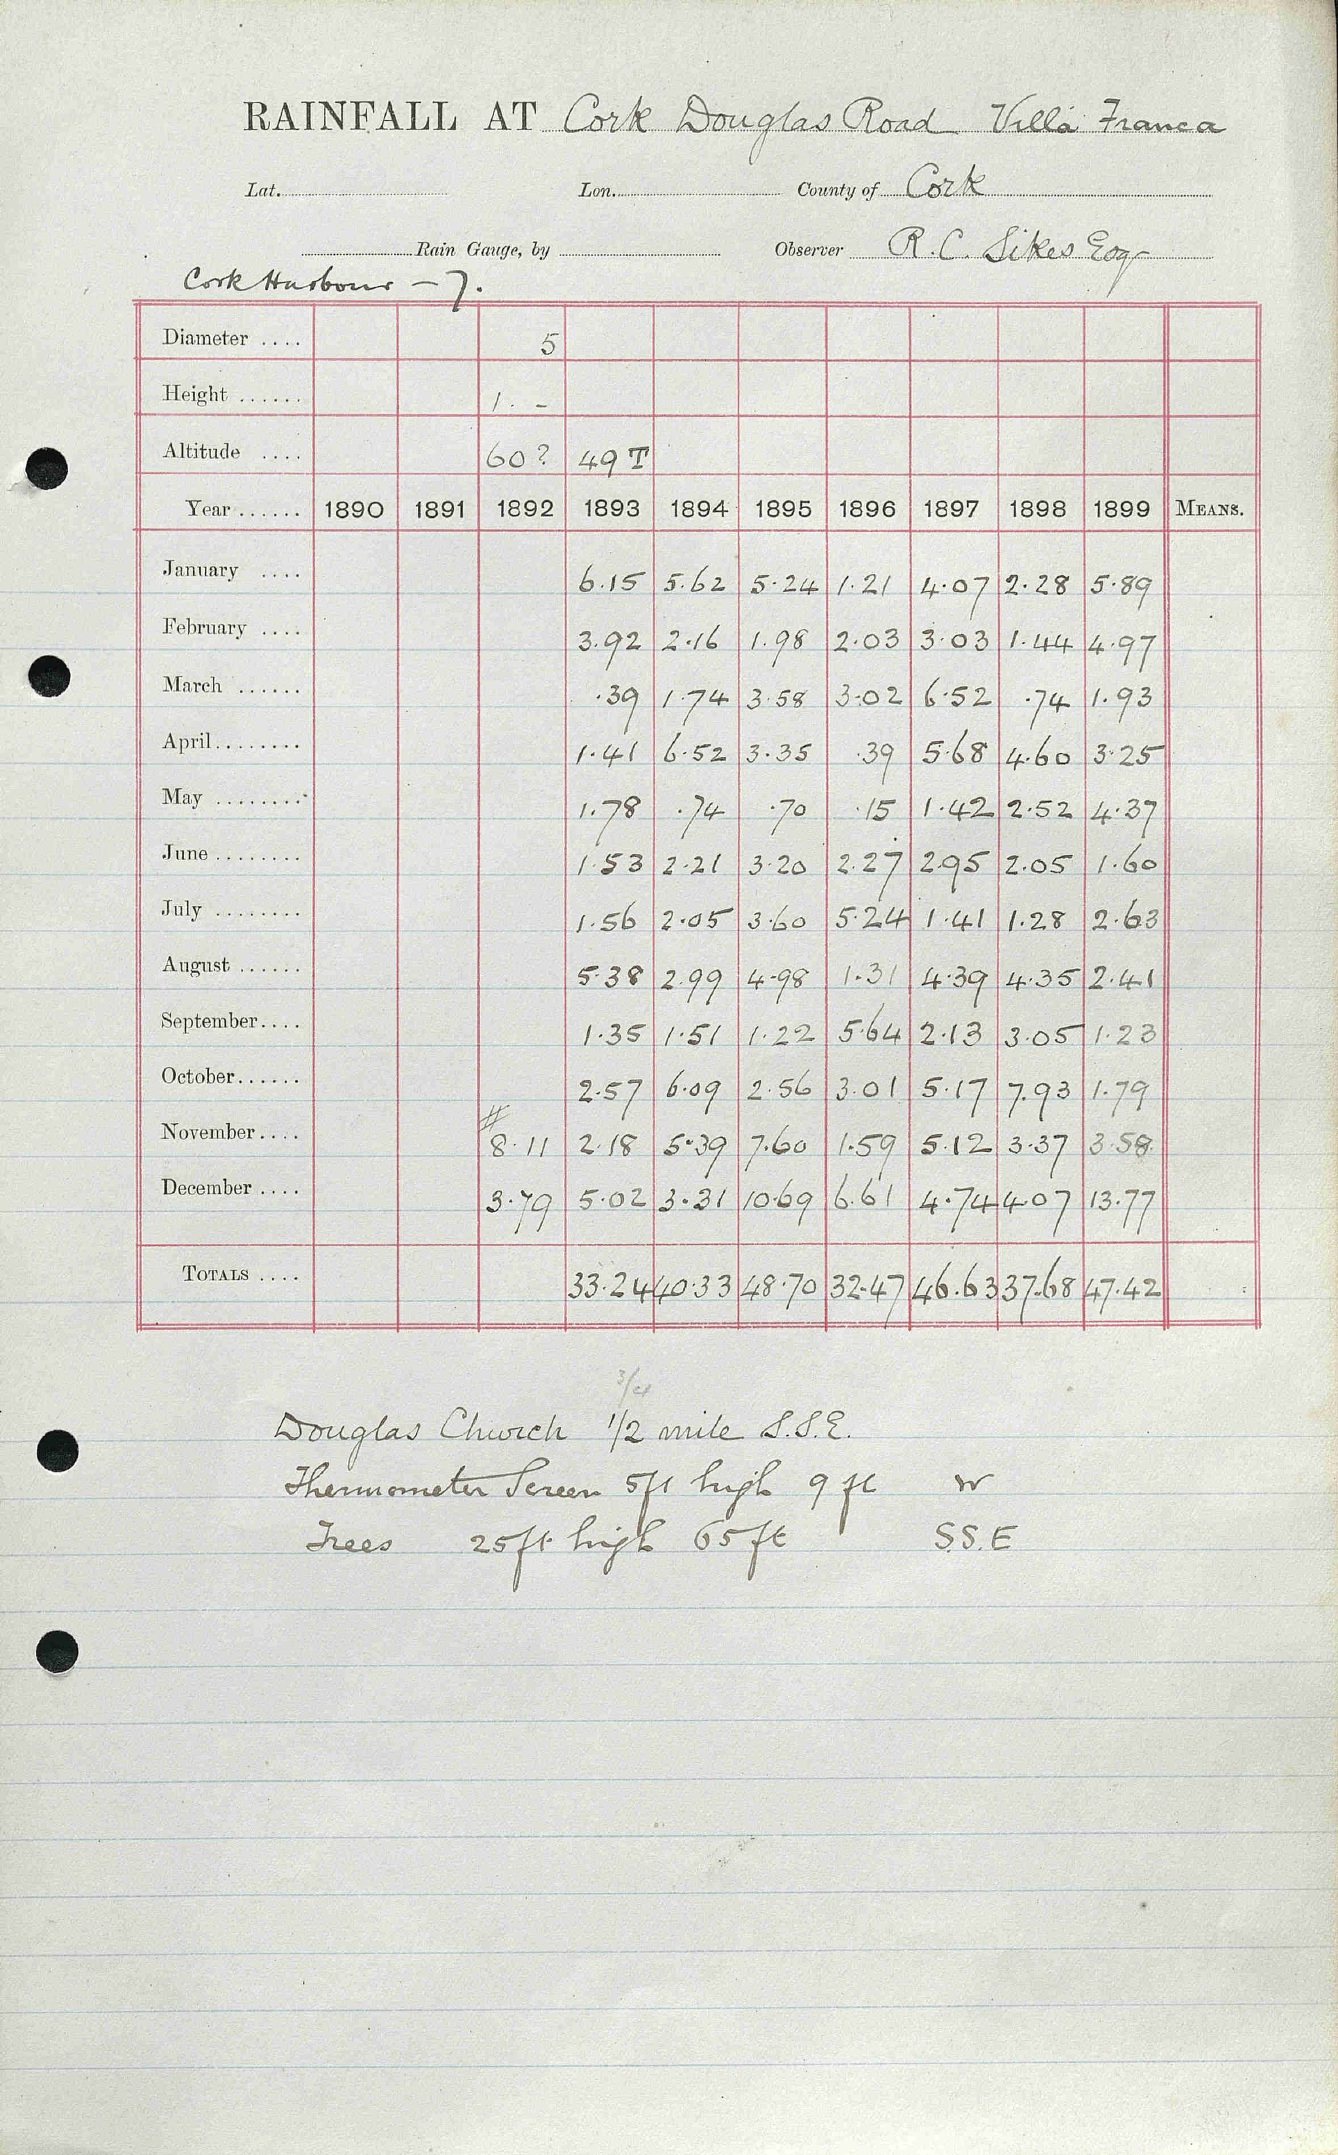 RAINFALL AT Cork Douglas Road Villa Franca
Lat. Lon. County of Cork
Rain Gauge, by Observer R. C. Sikes Esq
Cork Harbour – 7.
Diameter .... 5
Height ...... 1. -
Altitude .... 60? 49 T
Year ...... 1890 1891 1892 1893 1894 1895 1896 1897 1898 1899 MEANS.
January .... 6.15 5.62 5.24 1.21 4.07 2.28 5.89
February .... 3.92 2.16 1.98 2.03 3.03 1.44 4.97
March ...... .39 1.74 3.58 3.02 6.52 .74 1.93
April ........ 1.41 6.52 3.35 .39 5.68 4.60 3.25
May ........ 1.78 .74 .70 .15 1.42 2.52 4.37
June ........ 1.53 2.21 3.20 2.27 2.95 2.05 1.60
July ........ 1.56 2.05 3.60 5.24 1.41 1.28 2.63
August ...... 5.38 2.99 4.98 1.31 4.39 4.35 2.41
September .... 1.35 1.51 1.22 5.64 2.13 3.05 1.23
October ...... 2.57 6.09 2.56 3.01 5.17 7.93 1.79
#
November .... 8.11 2.18 5.39 7.60 1.59 5.12 3.37 3.58
December .... 3.79 5.02 3.31 10.69 6.61 4.74 4.07 13.77
TOTALS .... 33.24 40.33 48.70 32.47 46.63 37.68 47.42
3/4
Douglas Church 1/2 mile S.S.E.
Thermometer Screen 5ft high 9 ft W
Trees 25ft high 65 ft S.S.E